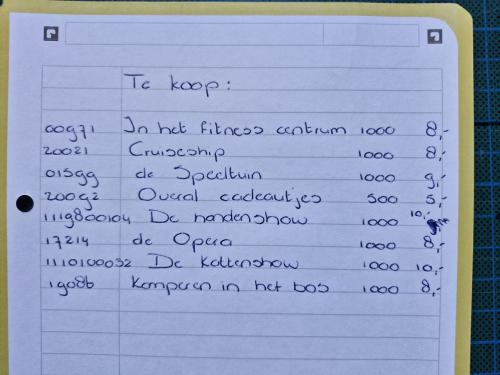 Te koop:
00971 In het fitness centrum 1000 8,-
20021 Cruiseship 1000 8,-
01599 de Speeltuin 1000 9,-
20092 Overal cadeautjes 500 5,-
1119800104 De hondenshow 1000 10,-
17214 de Opera 1000 8,-
1110100032 De Kattenshow 1000 10,-
19086 Kamperen in het bos 1000 8,-